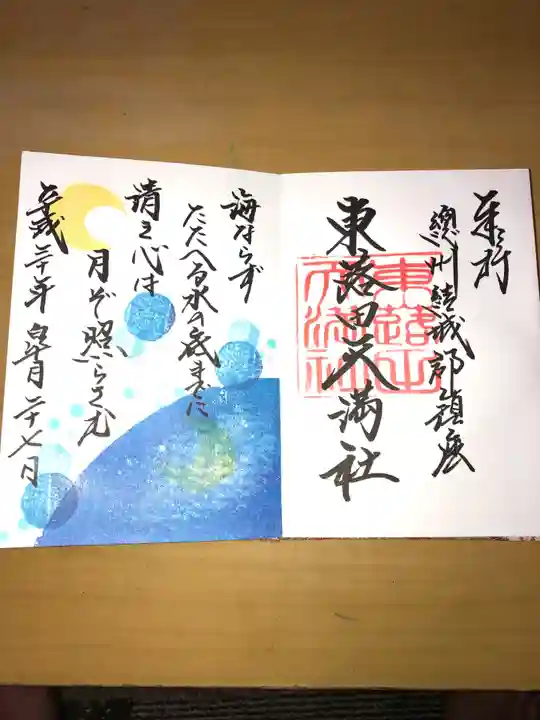 奉拝
總州結城郡鎮座
東蕗田天満社
東蕗田
天満社
海ならず
たたへる水の底までに
清き心は
月ぞ照らさむ
平成三十年 皐月 二十七日